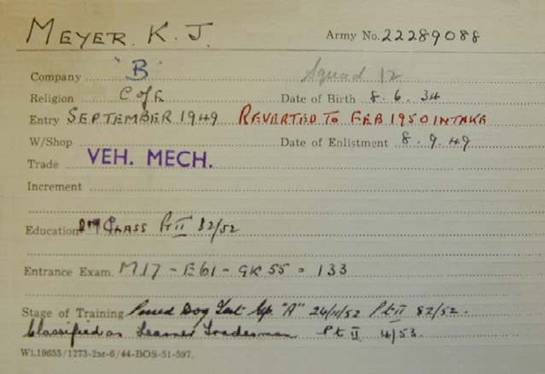 MEYER. K. J. Army No. 22289088
Company "B" Squad 12
Religion C of E Date of Birth 8. 6. 34
Entry SEPTEMBER 1949 REVERTED TO FEB 1950 INTAKE
W/Shop Date of Enlistment 8. 9. 49
Trade VEH. MECH.
Increment
Education CLASS Pt II 82/52
Entrance Exam. M17 - E61 - GK 55 = 133
Stage of Training Passed Test Gp. "A" 24/11/52 Pt II 82/52.
Classified as Learner Tradesman Pt II 4/53.
Wt.19655/1273-2m-6/44-BOS-51-597.